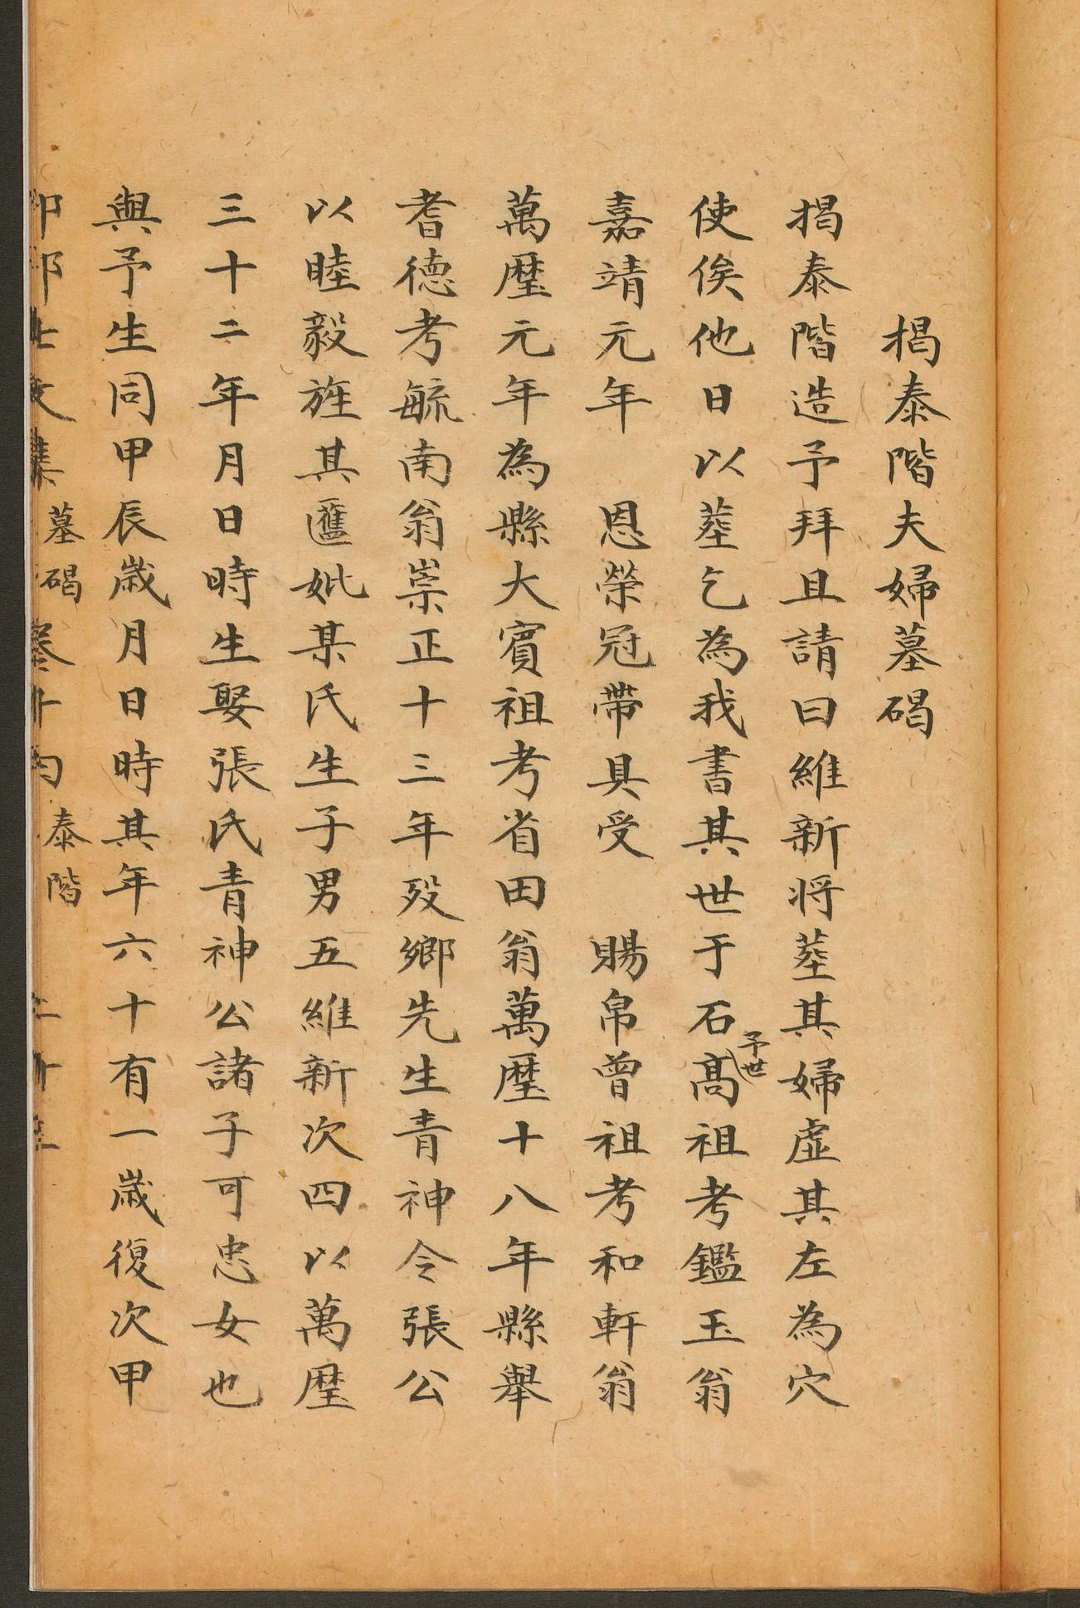 揭泰階夫婦墓碣
揭泰階造予拜且請曰維新将塟其婦虛其左為穴
使俟他日以塟乞為我書其世于石予世髙祖考鑑玉翁
嘉靖元年　恩榮冠帶具受　賜帛曾祖考和軒翁
萬歷元年為縣大賓祖考省田翁萬歷十八年縣舉
耆德考毓南翁崇正十三年歿鄉先生青神令張公
以睦毅旌其匾妣某氏生子男五維新次四以萬歷
三十二年月日時生娶張氏青神公諸子可忠女也
與予生同甲辰歲月日時其年六十有一歲復次甲
文集 墓碣 泰階